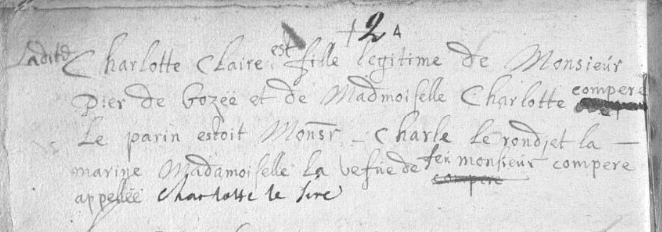 + 2 4
Ladite Charlotte Claire est fille legitime de Monsieur
Pier de Gozëe et de Madmoiselle Charlotte compere
Le parin estoit Monsr Charle Le rondjet la
marine Madamoiselle La vefue de feu monsieur compere
appelléé Charlotte le Sire